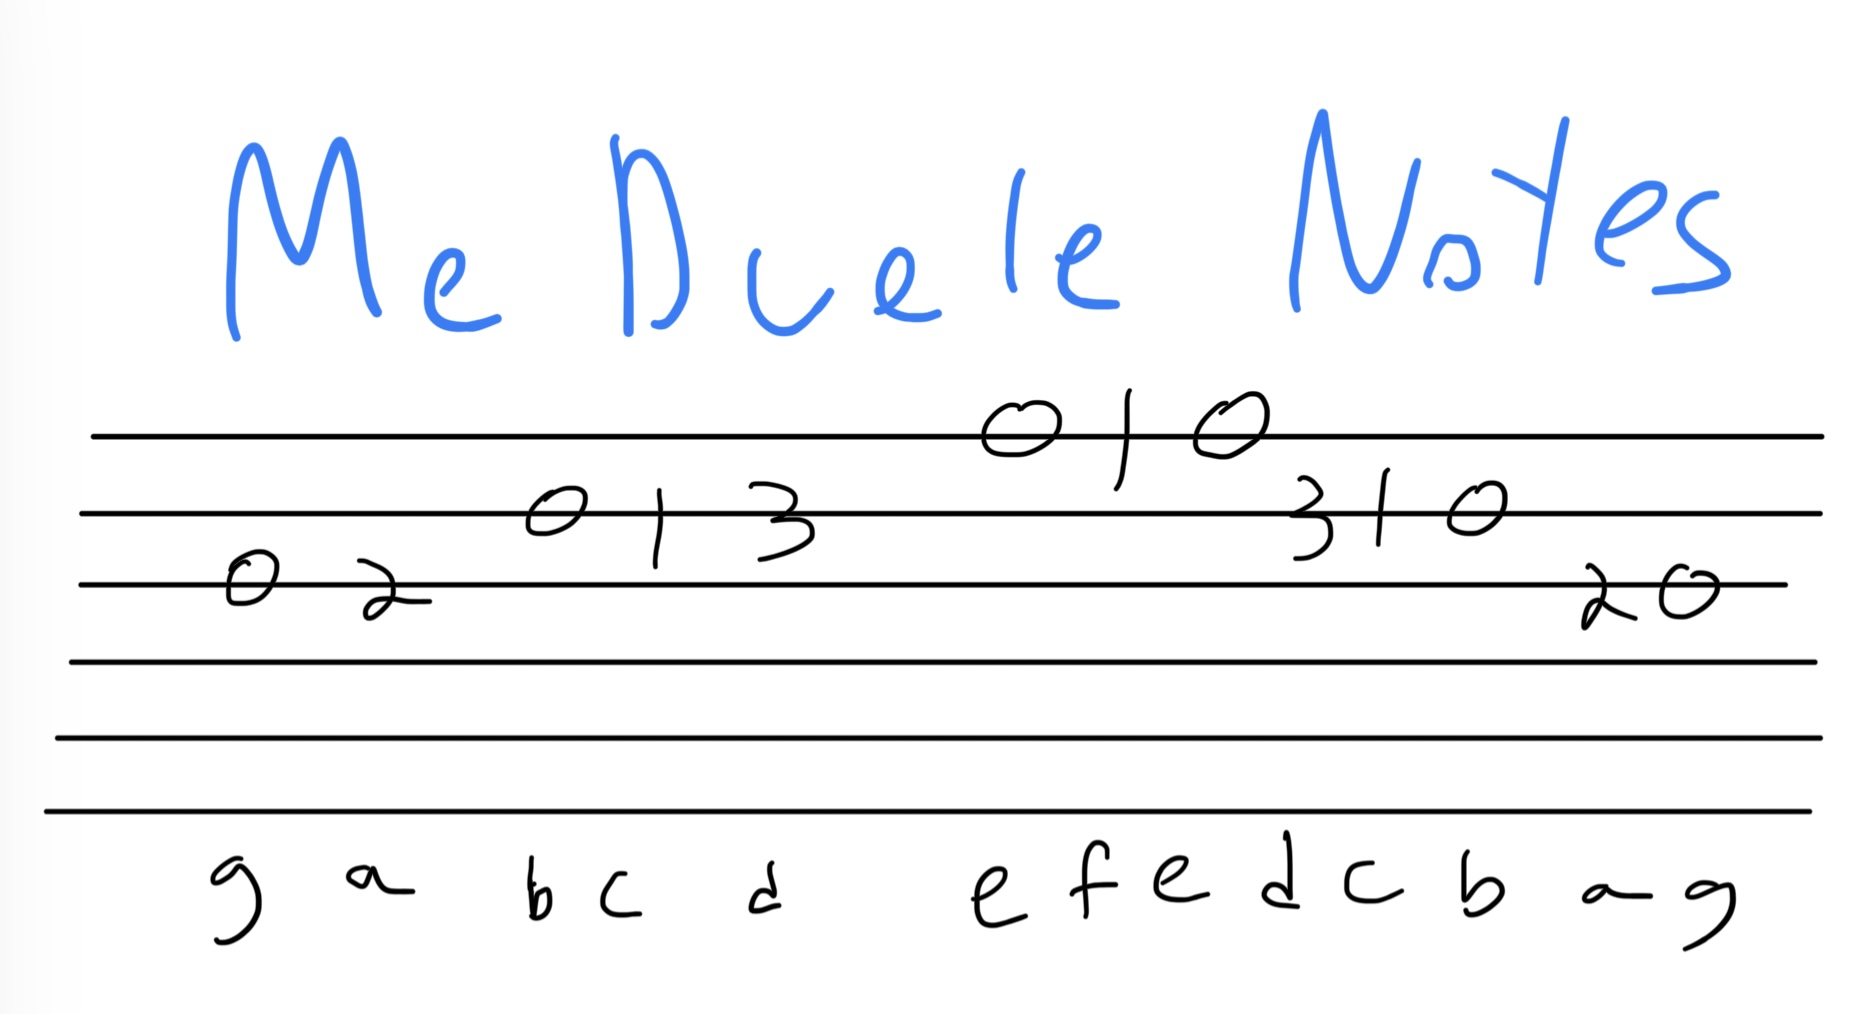 Me Duele Notes
0 1 0
0 1 3 3 1 0
0 2 2 0
g a b c d e f e d c b a g